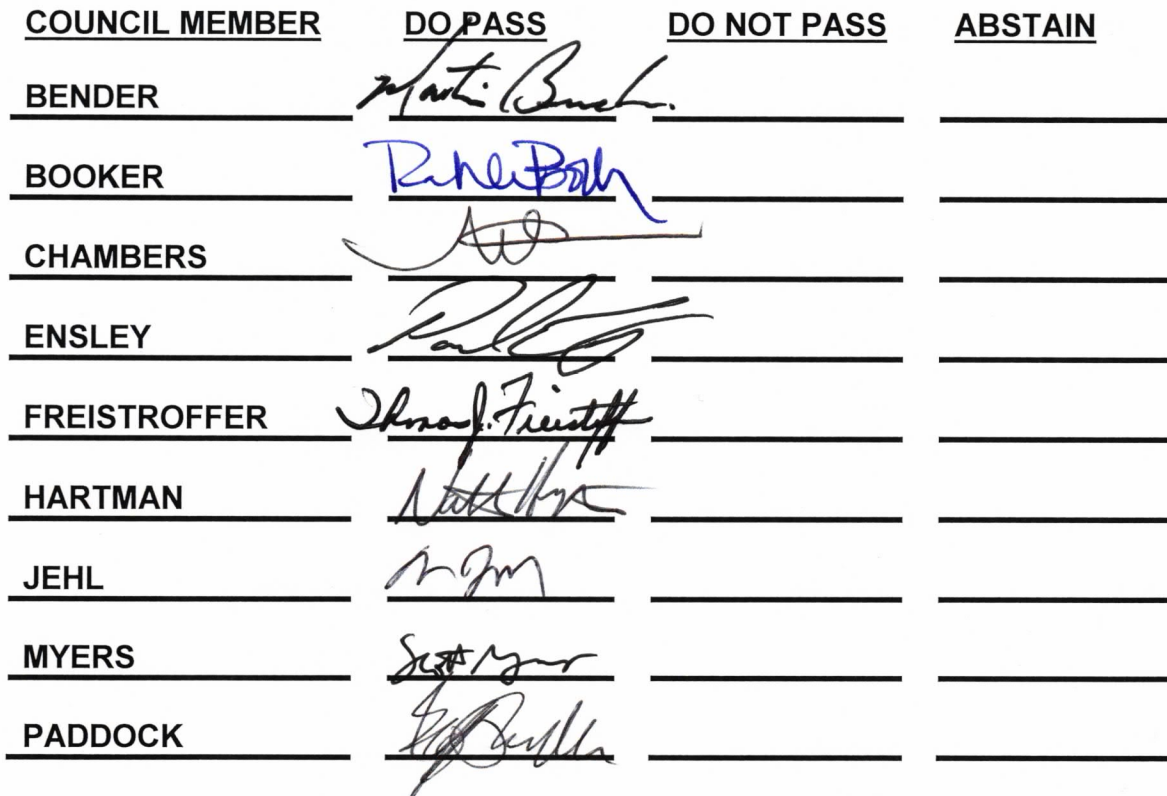 COUNCIL MEMBER DO PASS DO NOT PASS ABSTAIN
BENDER Martin Bender
BOOKER
CHAMBERS
ENSLEY Paul
FREISTROFFER Thomas J. Freistroffer
HARTMAN
JEHL
MYERS Scott Myers
PADDOCK